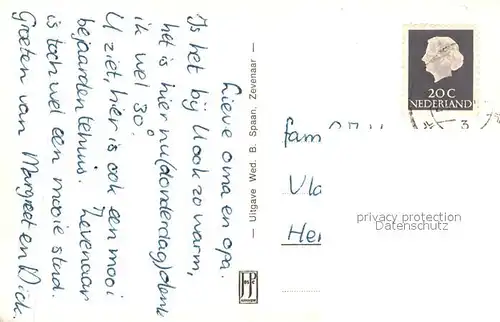 Lieve oma en opa.
Is het bij U ook zo warm,
het is hier nu (donderdag) denk
ik wel 30°.
U ziet, hier is ook een mooi
bejaardentehuis. Zevenaar
is toch wel een mooie stad.
Groeten van Margreet en Dick.
— Uitgave Wed. B. Spaan, Zevenaar —
20 C
NEDERLAND
fam
Vla
He
privacy protection
Datenschutz